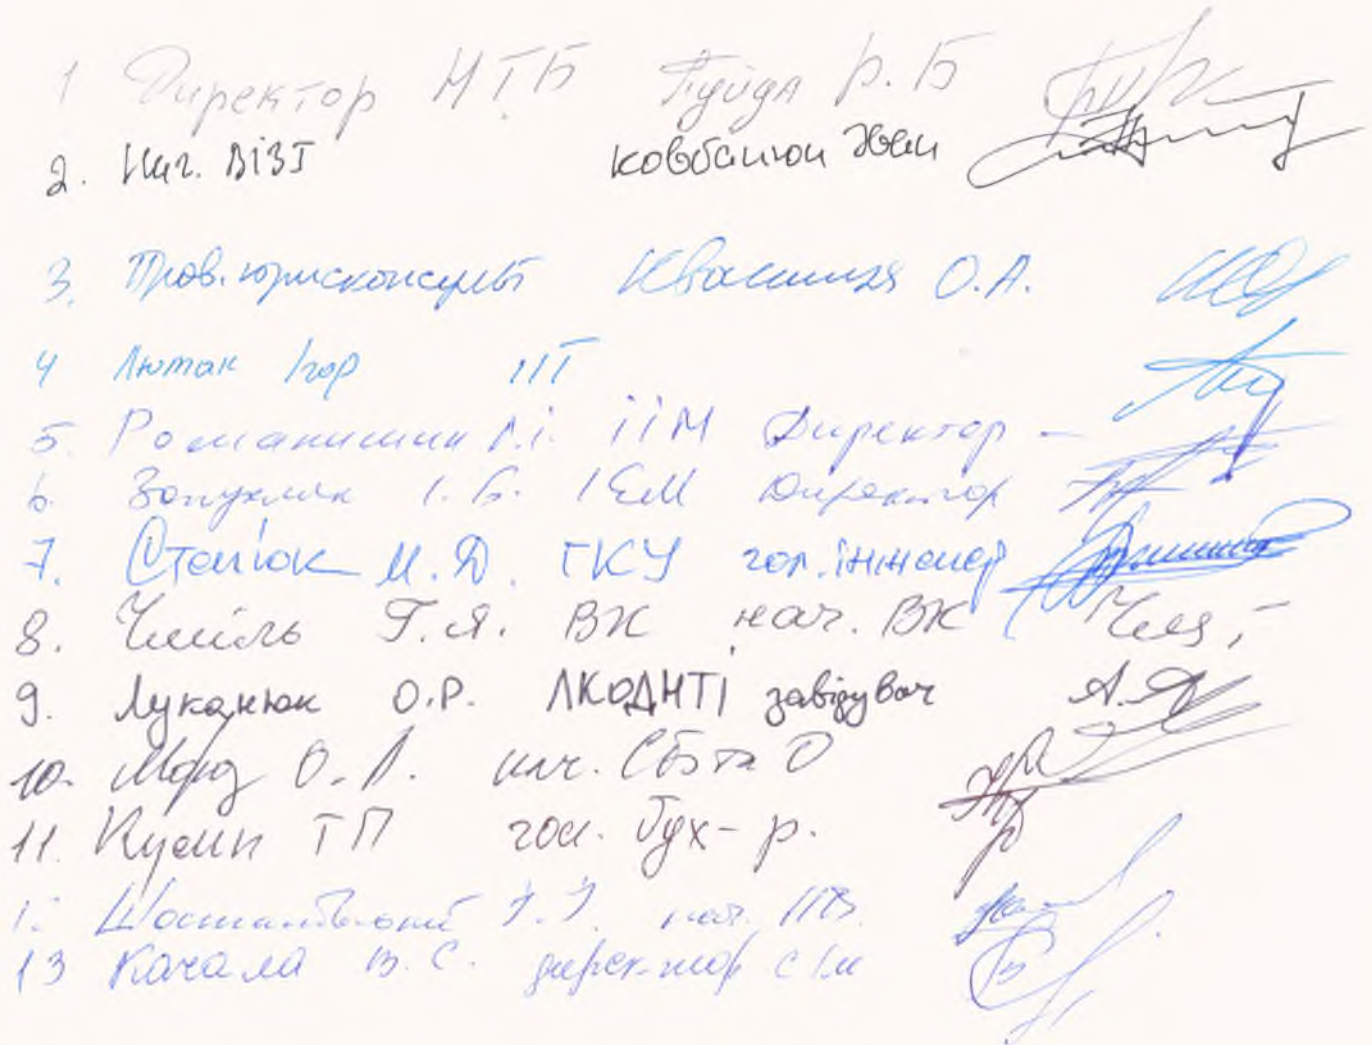 1 Директор НТБ Пуйда Р.Б
2. Нач. ВІЗІ Ковбанюк Іван
3. Пров. юрисконсульт Квасниця О.А.
4 Лютак Ігор ІІТ
5. Романишин Л.І. ІІМ Директор -
6. Запухляк І.Б. ІЕМ Директор
7. Стасюк М.Д. ГКУ гол. інженер
8. Чміль Г.Я. ВК нач. ВК
9. Луканюк О.Р. ЛКОДНТІ завідувач
10. Мороз О.Л. нач. СБ та О
11. Кусип ТП гол. бух-р.
нач.
13 Качала В.С. директор